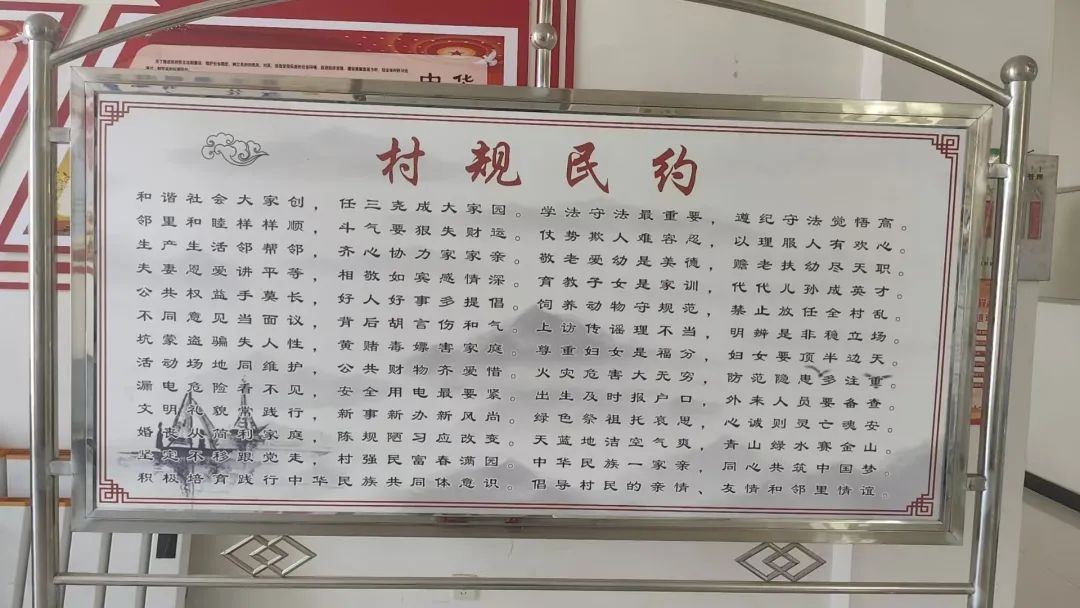 中华
村规民约
和谐社会大家创，任三尧成大家园。学法守法最重要，遵纪守法觉悟高。
邻里和睦样样顺，斗气要狠失财运。仗势欺人难容忍，以理服人有欢心。
生产生活邻帮邻，齐心协力家家亲。敬老爱幼是美德，赡老扶幼尽天职。
夫妻恩爱讲平等，相敬如宾感情深。育教子女是家训，代代儿孙成英才。
公共权益手莫长，好人好事多提倡。饲养动物守规范，禁止放任全村乱。
不同意见当面议，背后胡言伤和气。上访传谣理不当，明辨是非稳立场。
坑蒙盗骗失人性，黄赌毒嫖害家庭。尊重妇女是福分，妇女要顶半边天。
活动场地同维护，公共财物齐爱惜。火灾危害大无穷，防范隐患多注重。
漏电危险看不见，安全用电最要紧。出生及时报户口，外来人员要备查。
文明礼貌常践行，新事新办新风尚。绿色祭祖托哀思，心诚则灵亡魂安。
婚丧从简利家庭，陈规陋习应改变。天蓝地洁空气爽，青山绿水赛金山。
坚定不移跟党走，村强民富春满园。中华民族一家亲，同心共筑中国梦。
积极培育践行中华民族共同体意识。倡导村民的亲情、友情和邻里情谊。